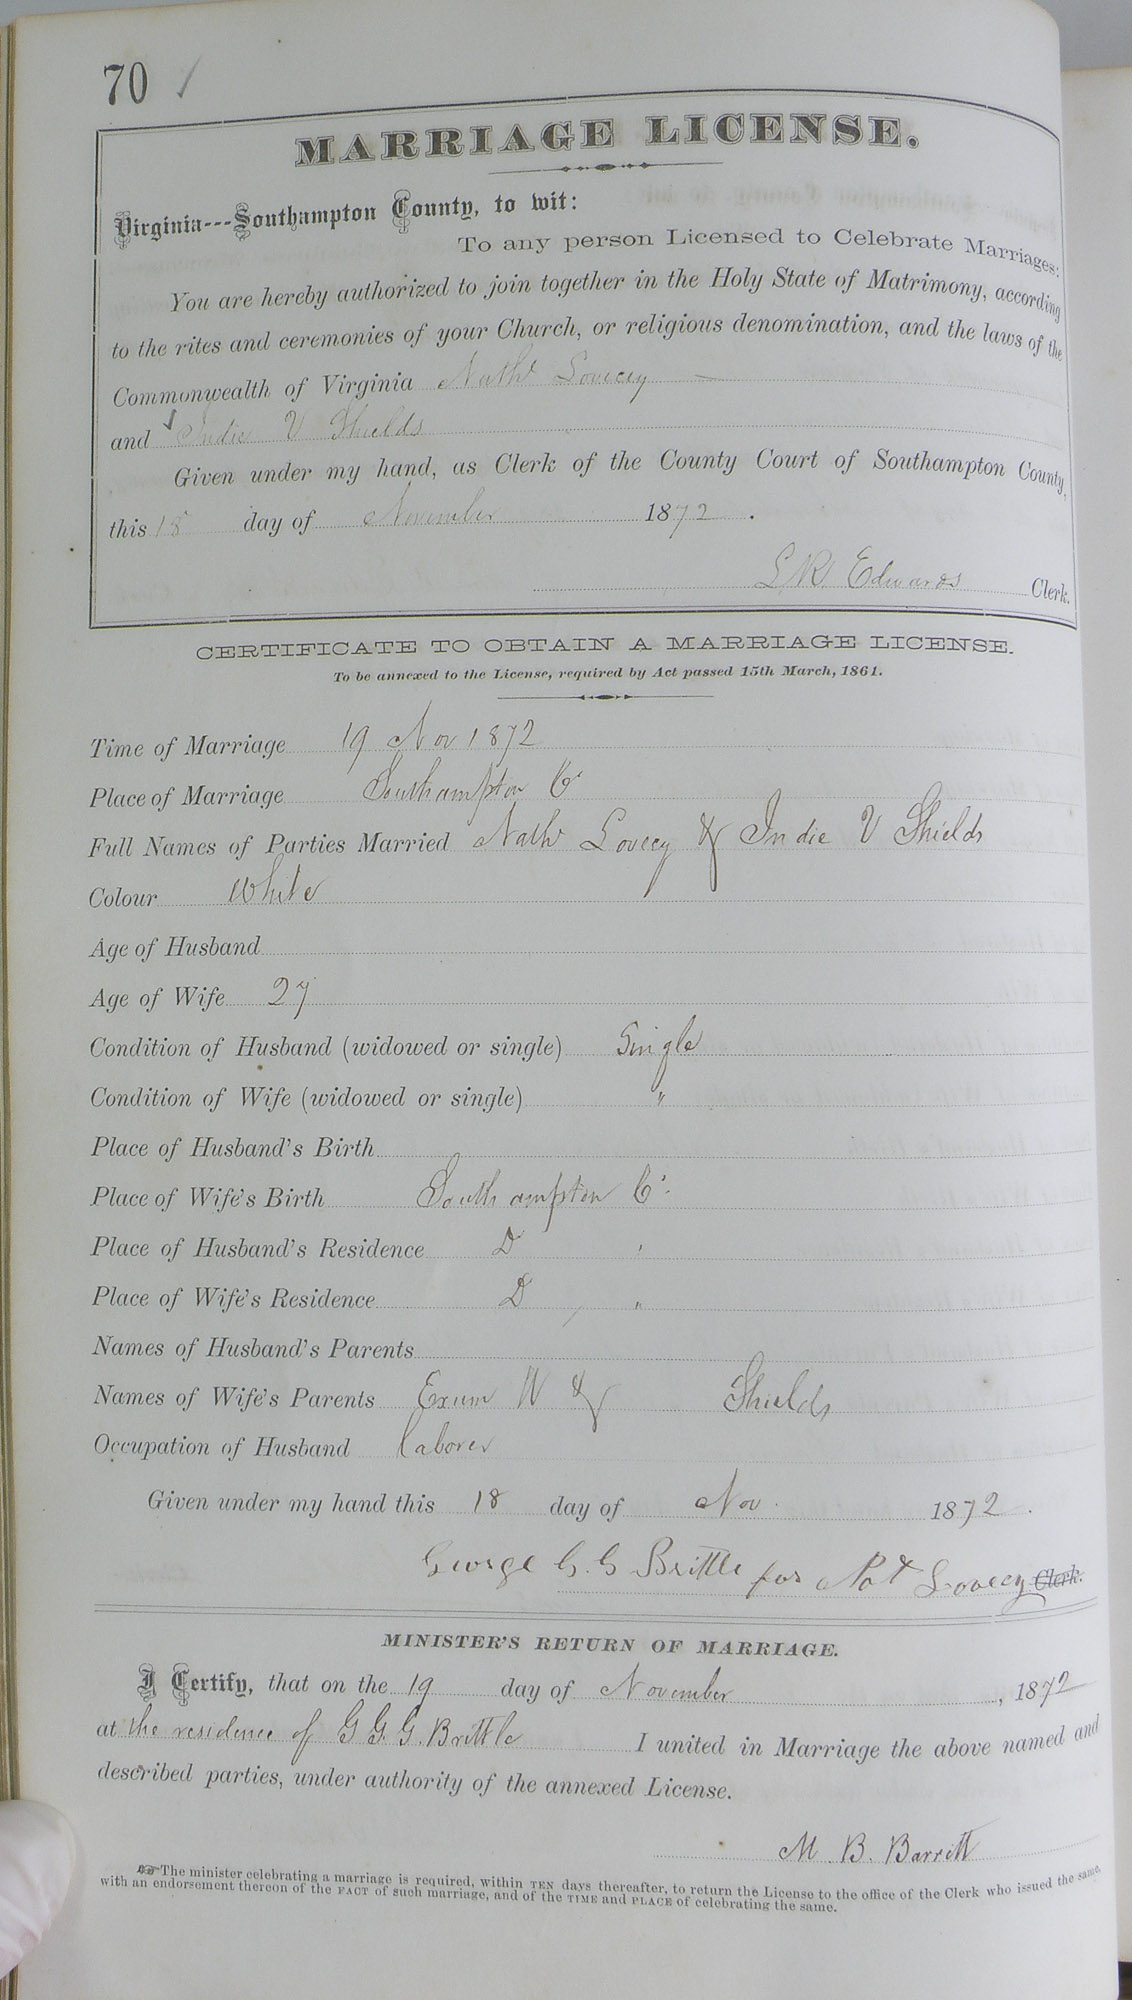 70
MARRIAGE LICENSE.
Virginia---Southampton County, to wit:
To any person Licensed to Celebrate Marriages:
You are hereby authorized to join together in the Holy State of Matrimony, according
to the rites and ceremonies of your Church, or religious denomination, and the laws of the
Commonwealth of Virginia Nathl Lovecey
and Indie V Shields
Given under my hand, as Clerk of the County Court of Southampton County,
this 18 day of November 1872.
L R Edwards Clerk.
CERTIFICATE TO OBTAIN A MARRIAGE LICENSE.
To be annexed to the License, required by Act passed 15th March, 1861.
Time of Marriage 19 Nov 1872
Place of Marriage Southampton Co
Full Names of Parties Married Nathl Lovecy & Indie V Shields
Colour White
Age of Husband
Age of Wife 27
Condition of Husband (widowed or single) Single
Condition of Wife (widowed or single) "
Place of Husband's Birth
Place of Wife's Birth Southampton Co.
Place of Husband's Residence Do "
Place of Wife's Residence Do "
Names of Husband's Parents
Names of Wife's Parents Exum W & Shields
Occupation of Husband laborer
Given under my hand this 18 day of Nov. 1872.
George G. G Brittle for Nat Lovecy Clerk.
MINISTER'S RETURN OF MARRIAGE.
I Certify, that on the 19 day of November, 1872
at the residence of G G. G. Brittle I united in Marriage the above named and
described parties, under authority of the annexed License.
M. B. Barritt
☞ The minister celebrating a marriage is required, within TEN days thereafter, to return the License to the office of the Clerk who issued the same,
with an endorsement thereon of the FACT of such marriage, and of the TIME and PLACE of celebrating the same.